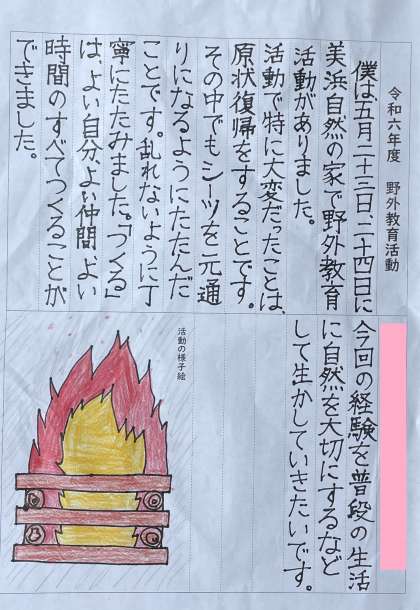 令和六年度 野外教育活動
僕は五月二十三日、二十四日に
美浜自然の家で野外教育
活動がありました。
活動で特に大変だったことは、
原状復帰をすることです。
その中でもシーツを元通
りになるようにたたんだ
ことです。乱れないように丁
寧にたたみました。「つくる」
は、よい自分、よい仲間、よい
時間のすべてつくることが
できました。
今回の経験を普段の生活
に自然を大切にするなど
して生かしていきたいです。
活動の様子絵